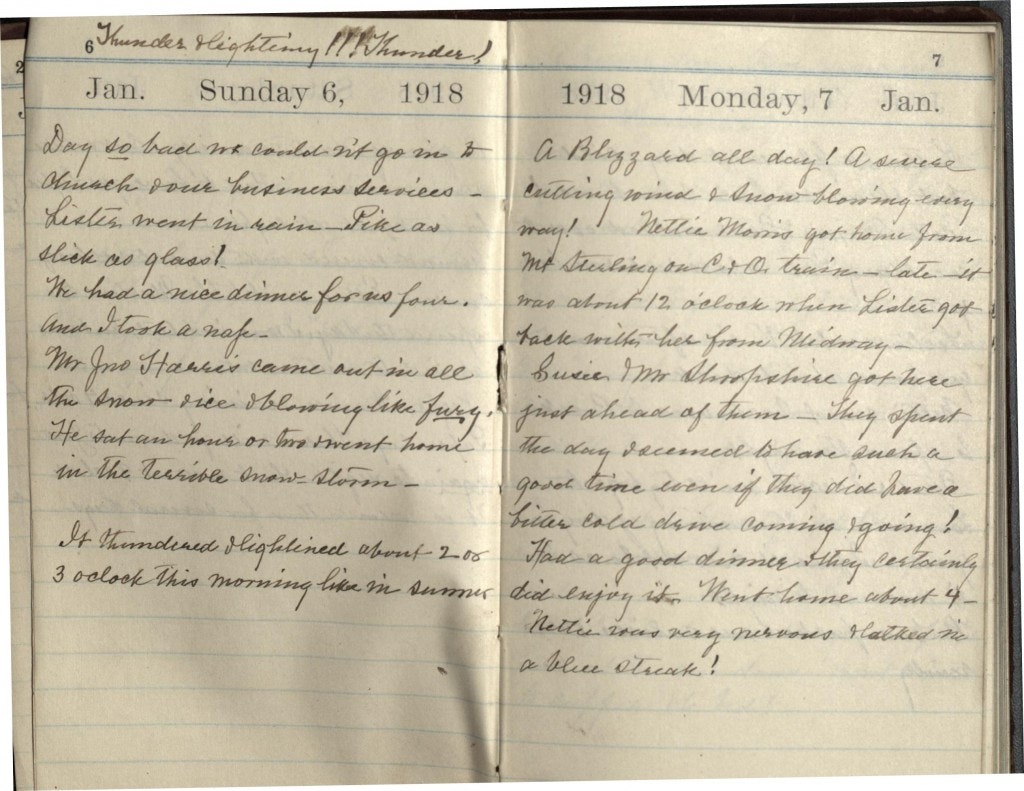 6 Thunder & lightning !!! Thunder!
Jan. Sunday 6, 1918
Day so bad we could n't go in to
church & our business services –
Lister went in rain – Pike as
slick as glass!
We had a nice dinner for us four.
And I took a nap –
Mr Jno Harris came out in all
the snow & ice & blowing like fury.
He sat an hour or two & went home
in the terrible snow-storm –
It thundered & lightined about 2 or
3 oclock this morning like in summer
7
1918 Monday, 7 Jan.
A Blizzard all day! A severe
cutting wind & snow blowing every
way! Nettie Morris got home from
Mt Sterling on C & O. train – late – it
was about 12 o'clock when Lister got
back with her from Midway –
Susie & Mr Shropshire got here
just ahead of them – They spent
the day & seemed to have such a
good time even if they did have a
bitter cold drive coming & going!
Had a good dinner & they certainly
did enjoy it. Went home about 4 –
Nettie was very nervous & talked in
a blue streak!
2
J